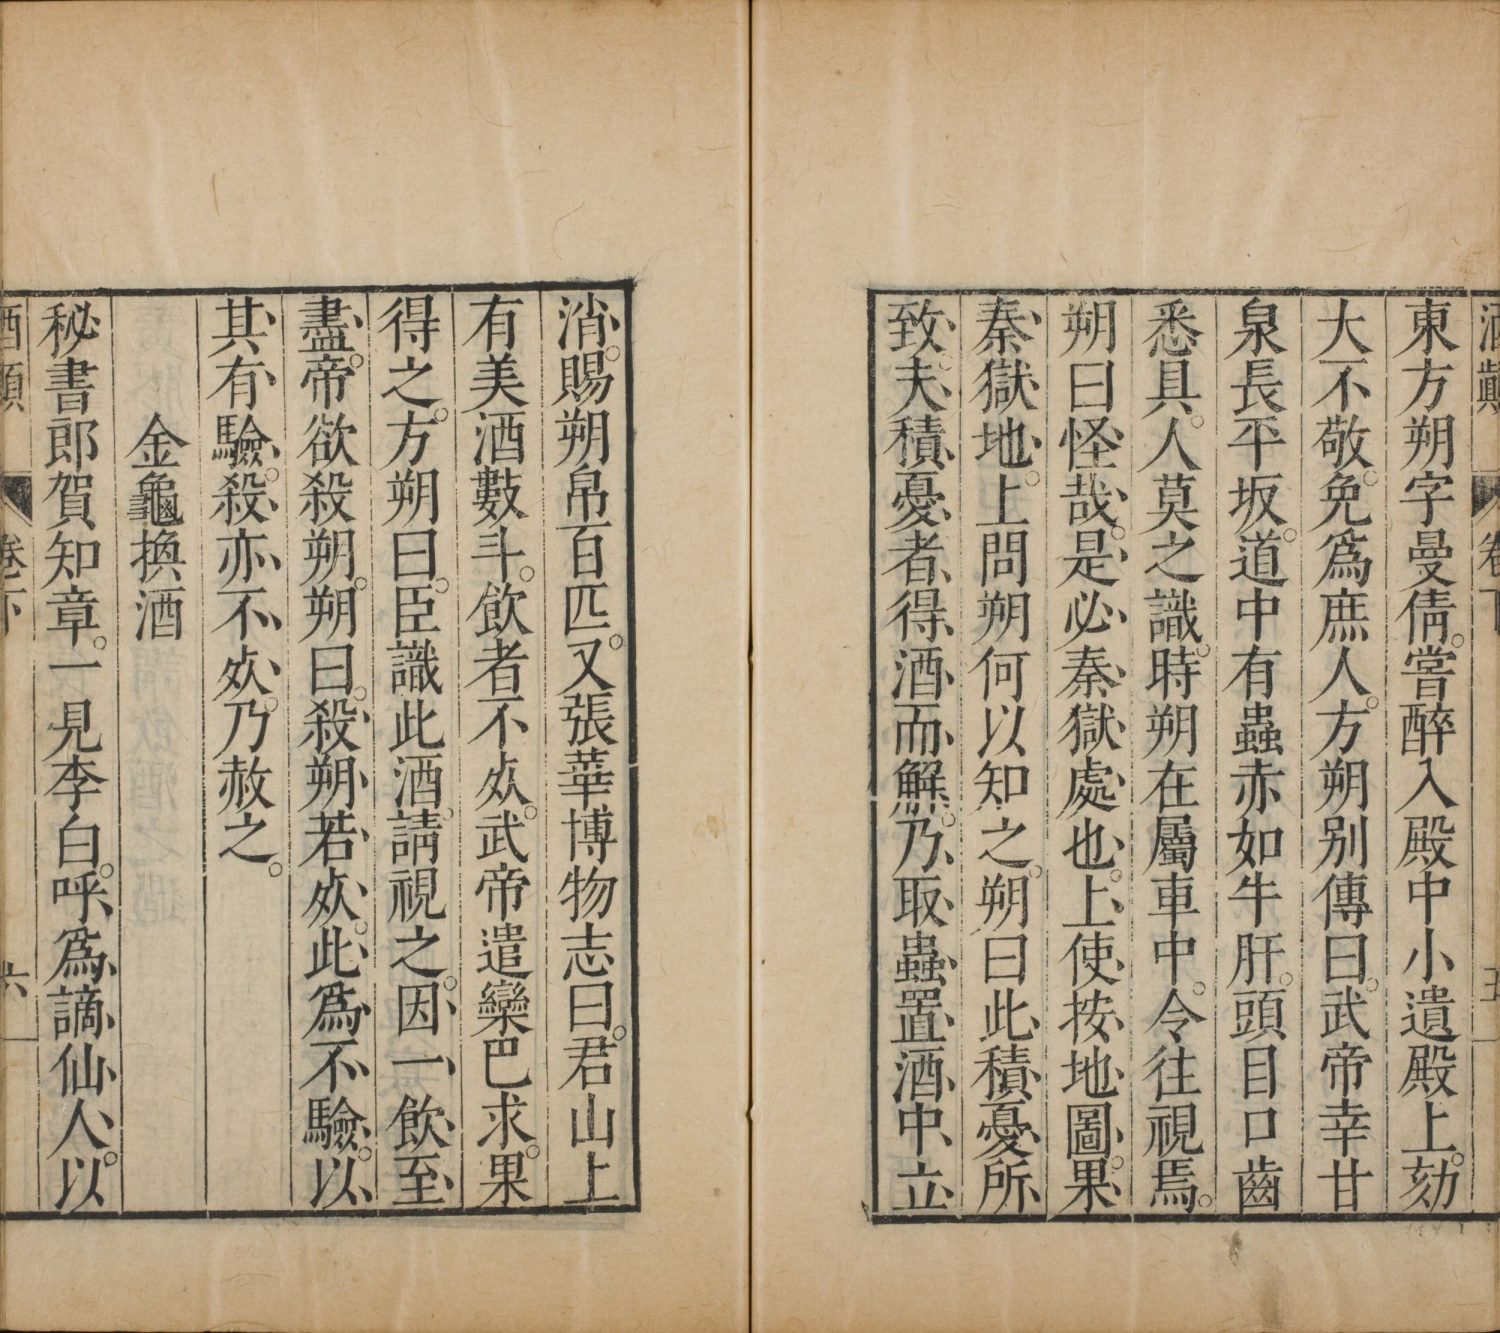 酒顛 卷下 五
東方朔字曼倩。嘗醉入殿中小遺殿上。劾
大不敬。免爲庶人。方朔別傳曰。武帝幸甘
泉長平坂。道中有蟲赤如牛肝。頭目口齒
悉具。人莫之識。時朔在屬車中。令往視焉。
朔曰怪哉。是必秦獄處也。上使按地圖。果
秦獄地。上問朔何以知之。朔曰此積憂所
致。夫積憂者、得酒而解。乃取蟲置酒中、立
消。賜朔帛百匹。又張華博物志曰。君山上
有美酒數斗。飲者不死。武帝遣欒巴求。果
得之。方朔曰。臣識此酒。請視之。因一飲至
盡。帝欲殺朔。朔曰。殺朔若死。此爲不驗。以
其有驗。殺亦不死。乃赦之。
金龜換酒
秘書郎賀知章。一見李白。呼爲謫仙人。以
酒顛 卷下 六